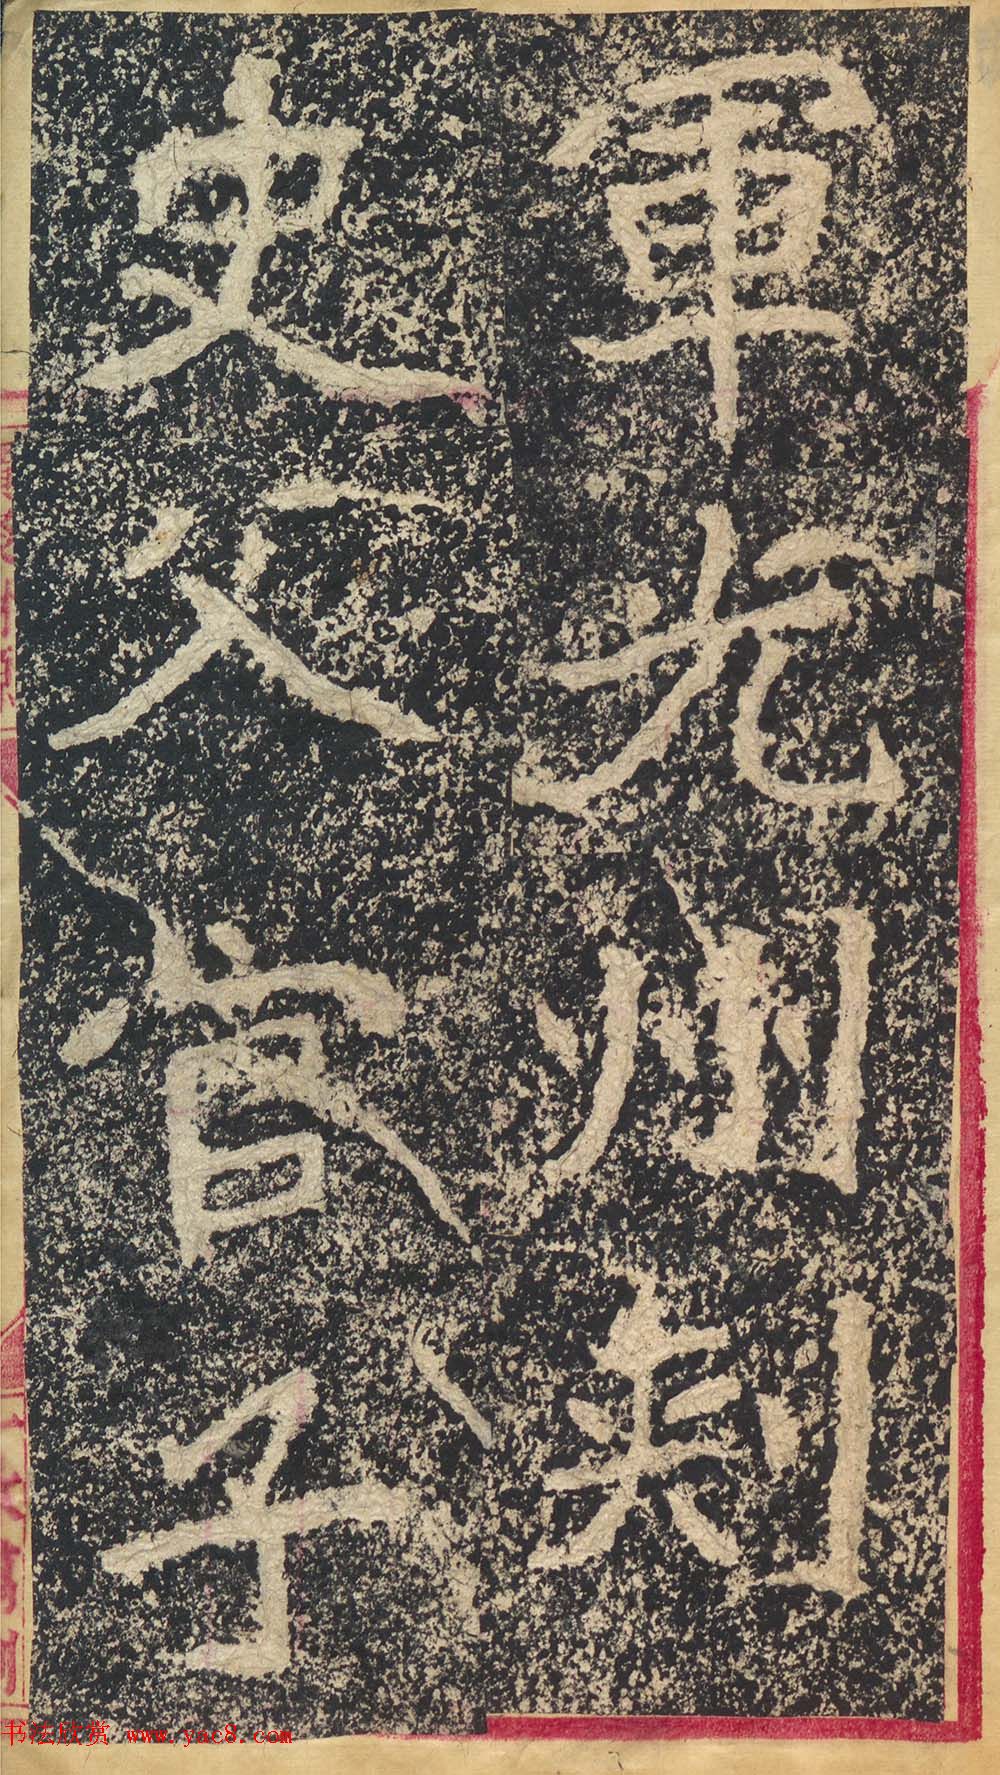 軍光州刺
史父官子
书法欣赏 www.yac8.com